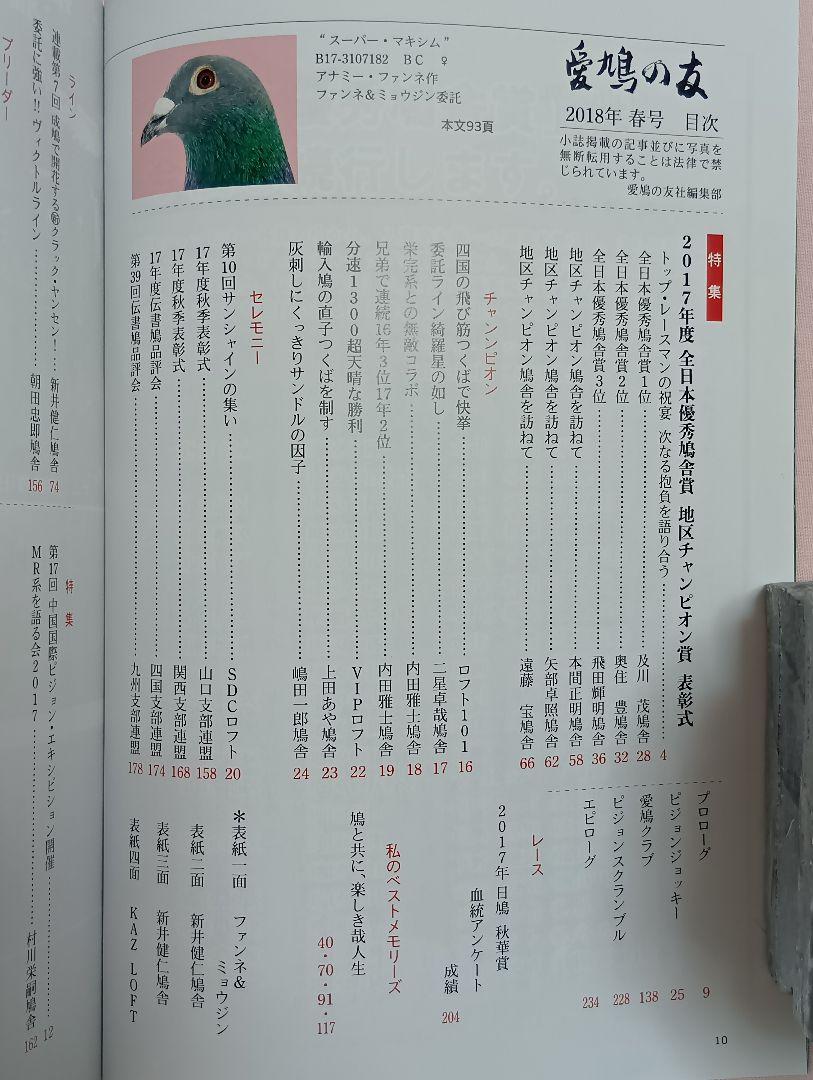 愛鳩の友
2018年 春号 目次
小誌掲載の記事並びに写真を
無断転用することは法律で禁
じられています。
愛鳩の友社編集部
“スーパー・マキシム”
B17-3107182 BC ♀
アナミー・ファンネ作
ファンネ&ミョウジン委託
本文93頁
特集
2017年度 全日本優秀鳩舎賞 地区チャンピオン賞 表彰式
トップ・レースマンの祝宴 次なる抱負を語り合う…………4
全日本優秀鳩舎賞1位…………及川 茂鳩舎 28
全日本優秀鳩舎賞2位…………奥住 豊鳩舎 32
全日本優秀鳩舎賞3位…………飛田輝明鳩舎 36
地区チャンピオン鳩舎を訪ねて…………本間正明鳩舎 58
地区チャンピオン鳩舎を訪ねて…………矢部卓照鳩舎 62
地区チャンピオン鳩舎を訪ねて…………遠藤 宝鳩舎 66
チャンンピオン
四国の飛び筋つくばで快挙…………ロフト101 16
委託ライン綺羅星の如し…………二星卓哉鳩舎 17
栄完系との無敵コラボ…………内田雅士鳩舎 18
兄弟で連続16年3位17年2位…………内田雅士鳩舎 19
分速1300超天晴な勝利…………VIPロフト 22
輸入鳩の直子つくばを制す…………上田あや鳩舎 23
灰刺しにくっきりサンドルの因子…………嶋田一郎鳩舎 24
セレモニー
第10回サンシャインの集い…………SDCロフト 20
17年度秋季表彰式…………山口支部連盟 158
17年度秋季表彰式…………関西支部連盟 168
17年度伝書鳩品評会…………四国支部連盟 174
第39回伝書鳩品評会…………九州支部連盟 178
プロローグ 9
ピジョンジョッキー 25
愛鳩クラブ 138
ピジョンスクランブル 228
エピローグ 234
レース
2017年 日鳩 秋華賞
血統アンケート
成績 204
私のベストメモリーズ
鳩と共に、楽しき哉人生
40・70・91・117
*表紙一面 ファンネ&
ミョウジン
表紙二面 新井健仁鳩舎
表紙三面 新井健仁鳩舎
表紙四面 KAZ LOFT
10
ライン
連載第7回 成鳩で開花する㊙クラック・ヤンセン!…新井健仁鳩舎 74
委託に強い!!ヴィクトルライン…………朝田忠郎鳩舎 156
ブリーダー
特集
第17回 中国国際ピジョン・エキシビション開催…………12
MR系を語る会2017…………村川栄嗣鳩舎 162